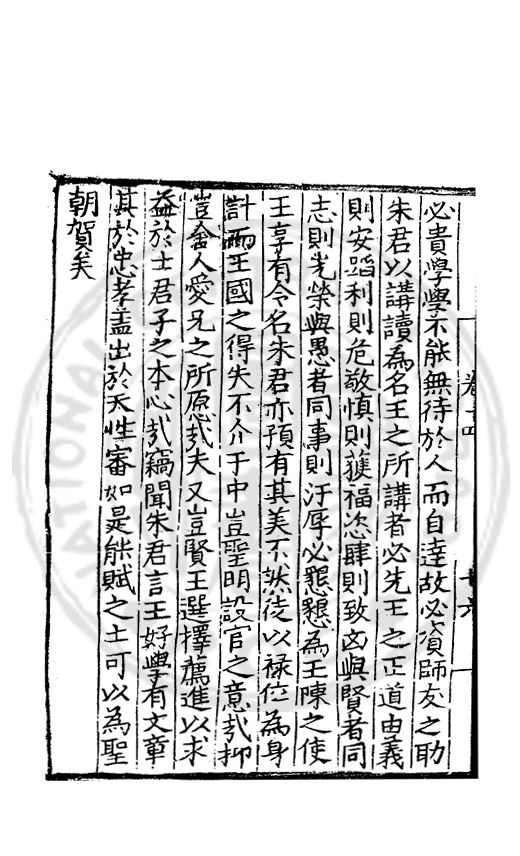 必貴學學不能無待於人而自達故必資師友之助
朱君以講讀為名王之所講者必先王之正道由義
則安蹈利則危敬慎則獲福恣肆則致凶與賢者同
志則光榮與愚者同事則汙辱必懇懇為王陳之使
王享有令名朱君亦預有其美不然徒以禄位為身
計而王國之得失不介于中豈聖明設官之意㢤抑
豈舍人愛兄之所愿㢤夫又豈賢王選擇薦進以求
益於士君子之本心㢤竊聞朱君言王好學有文章
其於忠孝盖出於天性審如是能賦之士可以為聖
朝賀矣
卷十四
十六